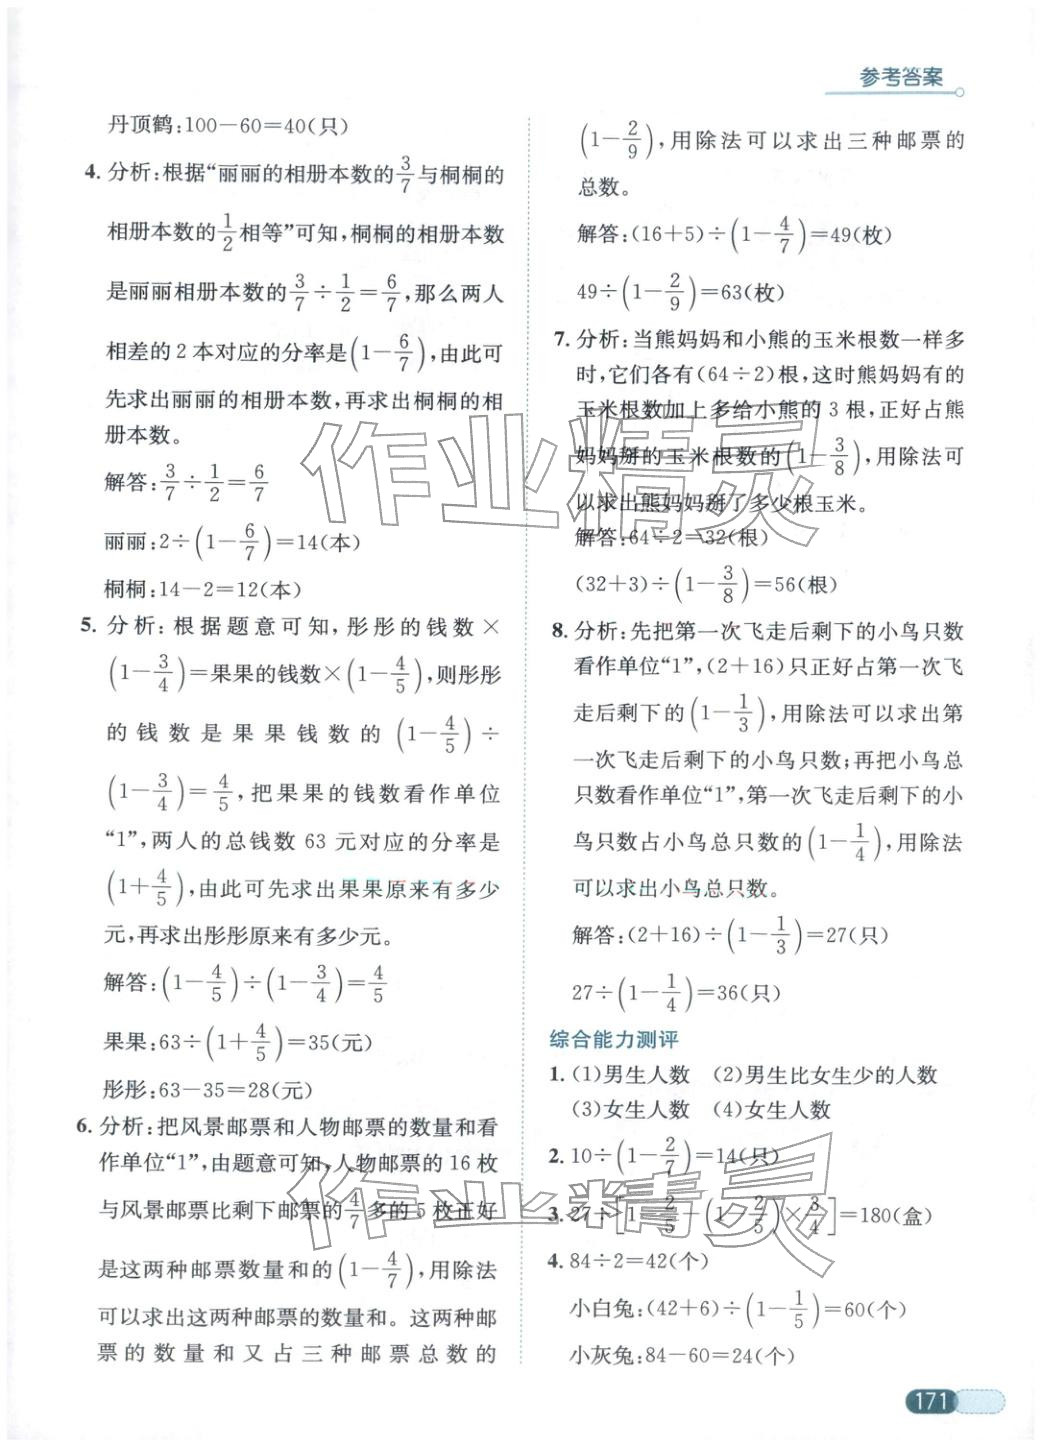 参考答案
丹顶鹤:100-60=40(只)
4. 分析:根据“丽丽的相册本数的3/7与桐桐的
相册本数的1/2相等”可知,桐桐的相册本数
是丽丽相册本数的3/7÷1/2=6/7,那么两人
相差的2本对应的分率是(1-6/7),由此可
先求出丽丽的相册本数,再求出桐桐的相
册本数。
解答:3/7÷1/2=6/7
丽丽:2÷(1-6/7)=14(本)
桐桐:14-2=12(本)
5. 分析:根据题意可知,彤彤的钱数×
(1-3/4)=果果的钱数×(1-4/5),则彤彤
的钱数是果果钱数的(1-4/5)÷
(1-3/4)=4/5,把果果的钱数看作单位
“1”,两人的总钱数63元对应的分率是
(1+4/5),由此可先求出果果原来有多少
元,再求出彤彤原来有多少元。
解答:(1-4/5)÷(1-3/4)=4/5
果果:63÷(1+4/5)=35(元)
彤彤:63-35=28(元)
6. 分析:把风景邮票和人物邮票的数量和看
作单位“1”,由题意可知,人物邮票的16枚
与风景邮票比剩下邮票的4/7多的5枚正好
是这两种邮票数量和的(1-4/7),用除法
可以求出这两种邮票的数量和。这两种邮
票的数量和又占三种邮票总数的
(1-2/9),用除法可以求出三种邮票的
总数。
解答:(16+5)÷(1-4/7)=49(枚)
49÷(1-2/9)=63(枚)
7. 分析:当熊妈妈和小熊的玉米根数一样多
时,它们各有(64÷2)根,这时熊妈妈有的
玉米根数加上多给小熊的3根,正好占熊
妈妈掰的玉米根数的(1-3/8),用除法可
以求出熊妈妈掰了多少根玉米。
解答:64÷2=32(根)
(32+3)÷(1-3/8)=56(根)
8. 分析:先把第一次飞走后剩下的小鸟只数
看作单位“1”,(2+16)只正好占第一次飞
走后剩下的(1-1/3),用除法可以求出第
一次飞走后剩下的小鸟只数;再把小鸟总
只数看作单位“1”,第一次飞走后剩下的小
鸟只数占小鸟总只数的(1-1/4),用除法
可以求出小鸟总只数。
解答:(2+16)÷(1-1/3)=27(只)
27÷(1-1/4)=36(只)
综合能力测评
1. (1)男生人数 (2)男生比女生少的人数
(3)女生人数 (4)女生人数
2. 10÷(1-2/7)=14(只)
3. 27÷[1-2/5-(1-2/5)×3/4]=180(盒)
4. 84÷2=42(个)
小白兔:(42+6)÷(1-1/5)=60(个)
小灰兔:84-60=24(个)
171
作业精灵
作业精灵